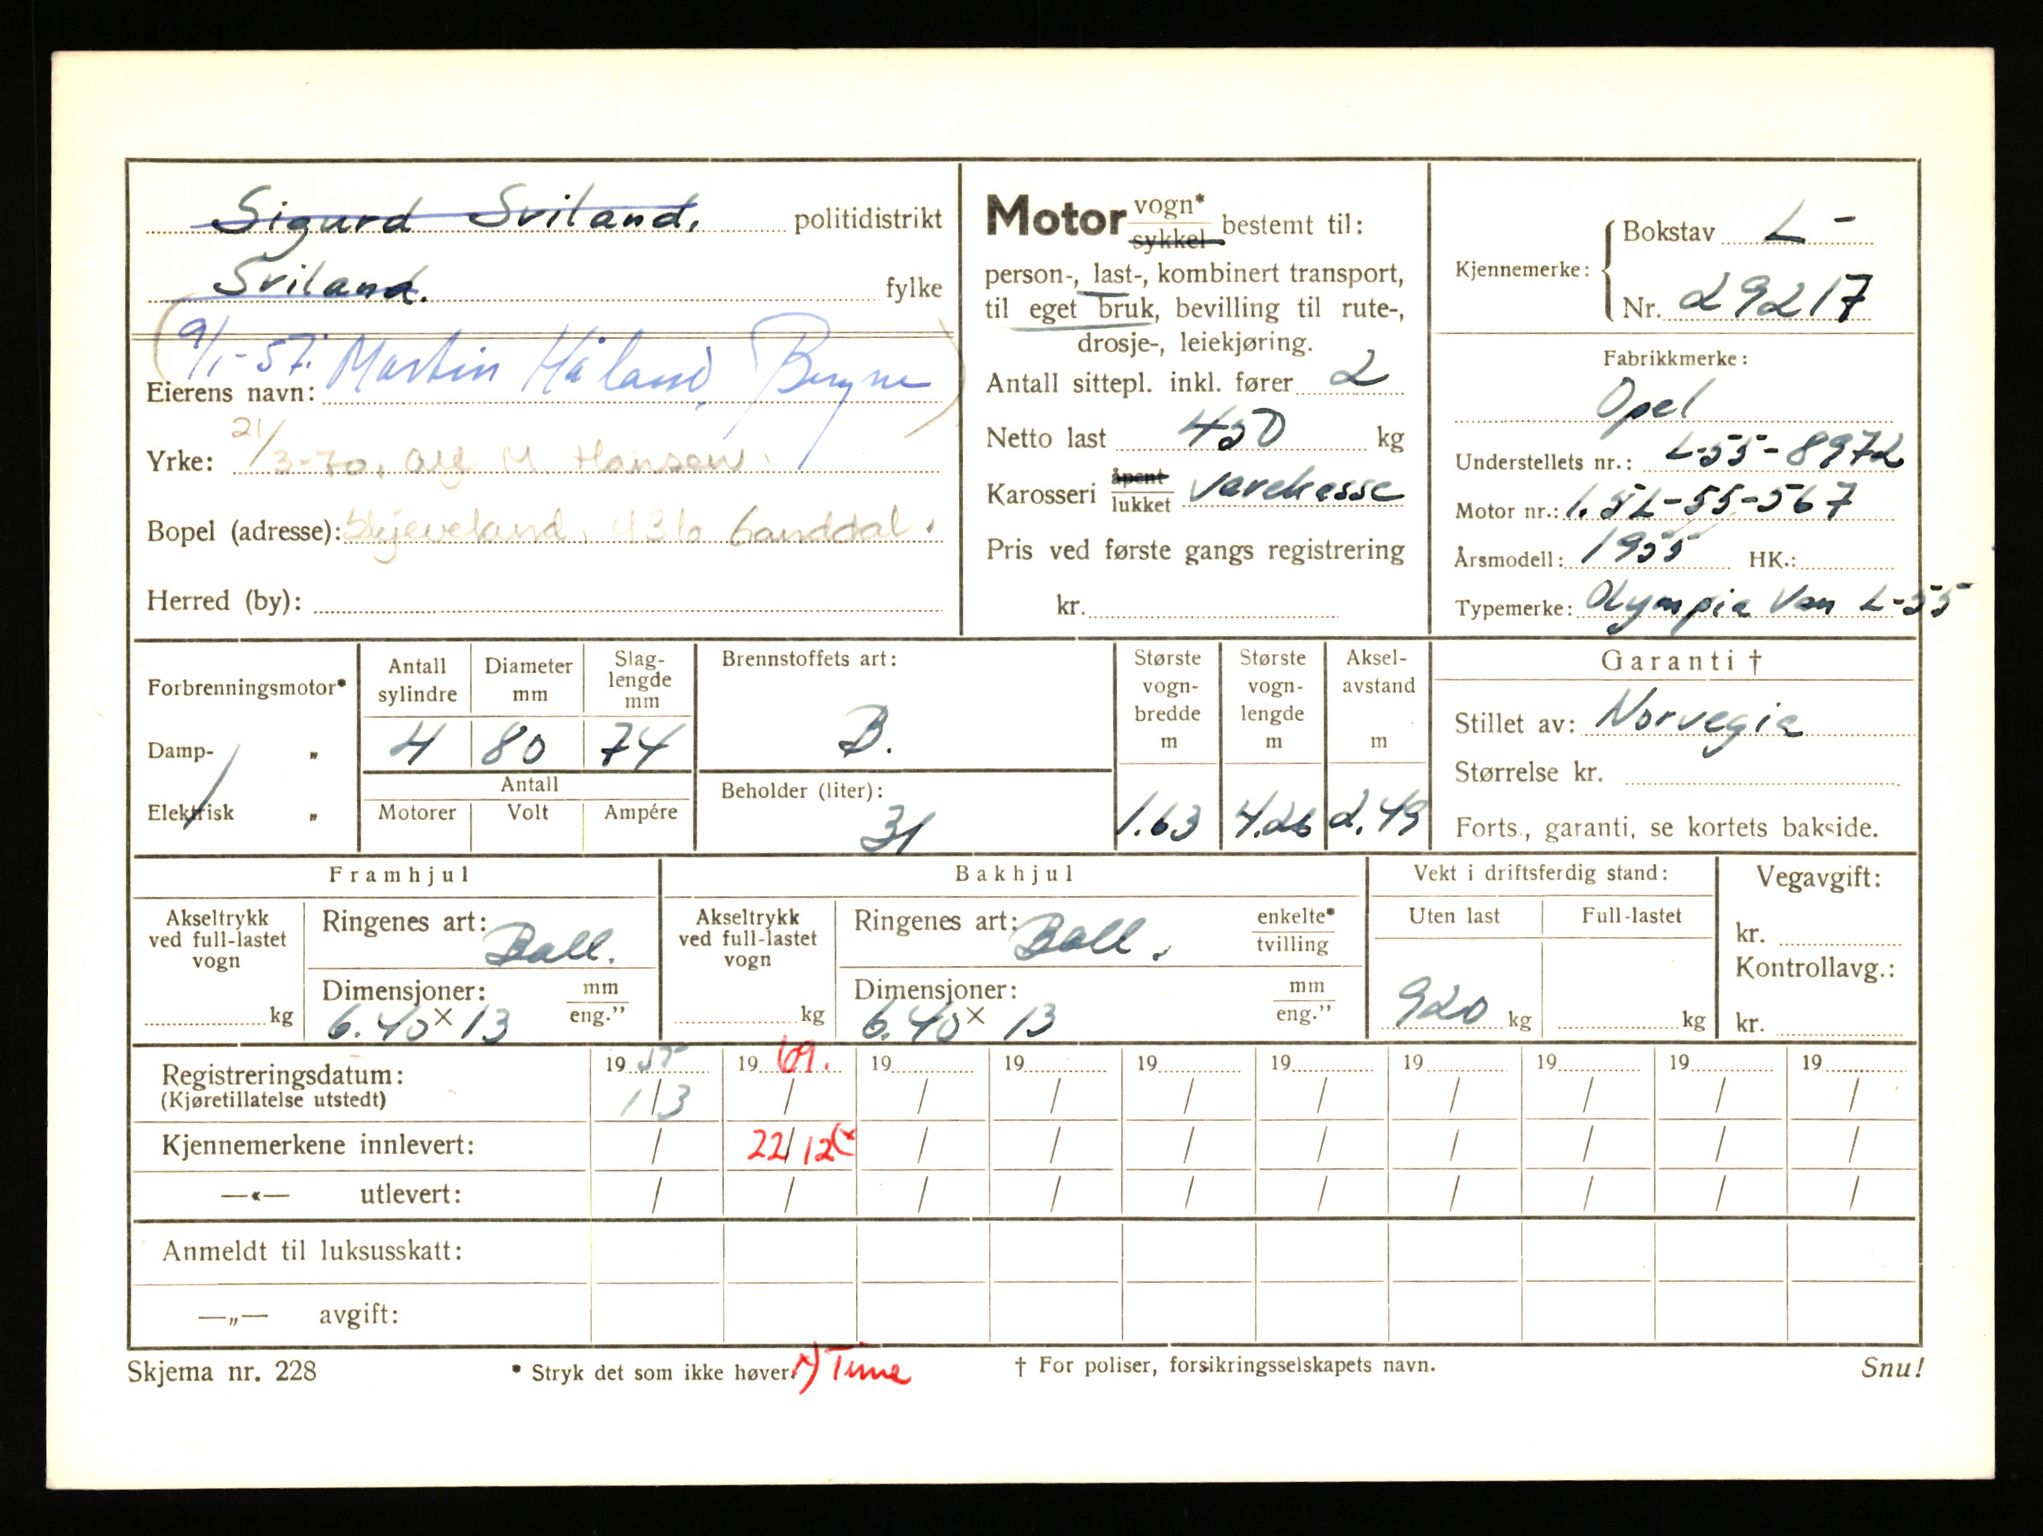 Sigurd Sviland, politidistrikt
Sviland. fylke
(9/1-57. Martin Håland, Bryne)
Eierens navn:
21/3-70, Alf M. Hansen.
Yrke:
Bopel (adresse): Skjeveland, 4310 Ganddal.
Herred (by):
Motor vogn* sykkel bestemt til:
person-, last-, kombinert transport,
til eget bruk, bevilling til rute-,
drosje-, leiekjøring.
Antall sittepl. inkl. fører 2
Netto last 450 kg
Karosseri åpent lukket varekasse
Pris ved første gangs registrering
kr.
Kjennemerke: Bokstav L-
Nr. 29217
Fabrikkmerke:
Opel
Understellets nr.: L-55-8972
Motor nr.: 1.5L-55-567
Årsmodell: 1955 HK.:
Typemerke: Olympia Van L-55
Forbrenningsmotor*
Damp- „
Elektrisk „
Antall sylindre
Diameter mm
Slag-lengde mm
4 80 74
Antall
Motorer Volt Ampére
Brennstoffets art:
B.
Beholder (liter):
31
Største vogn-bredde m
1.63
Største vogn-lengde m
4.26
Aksel-avstand m
2.49
Garanti †
Stillet av: Norvegia
Størrelse kr.
Forts., garanti, se kortets bakside.
Framhjul
Akseltrykk ved full-lastet vogn
kg
Ringenes art: Ball.
Dimensjoner: mm eng."
6.40 x 13
Bakhjul
Akseltrykk ved full-lastet vogn
kg
Ringenes art: Ball. enkelte* tvilling
Dimensjoner: mm eng."
6.40 x 13
Vekt i driftsferdig stand:
Uten last Full-lastet
920 kg kg
Vegavgift:
kr.
Kontrollavg.:
kr.
Registreringsdatum: 19 55 19 69. 19 19 19 19 19 19 19 19
(Kjøretillatelse utstedt) 1/3 / / / / / / / / /
Kjennemerkene innlevert: / 22/12(x / / / / / / / /
—«— utlevert: / / / / / / / / / /
Anmeldt til luksusskatt:
—„— avgift:
Skjema nr. 228
* Stryk det som ikke høver.
x) Time
† For poliser, forsikringsselskapets navn.
Snu!